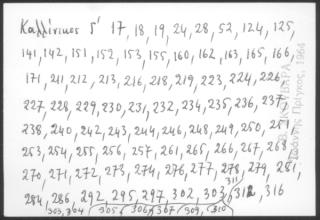 Καλλίνικος Δ' 17, 18, 19, 24, 28, 52, 124, 125,
141, 142, 151, 152, 153, 155, 160, 162, 163, 165, 166,
171, 211, 212, 213, 216, 218, 219, 223, 224, 226,
227, 228, 229, 230, 231, 232, 234, 235, 236, 237,
238, 240, 242, 243, 244, 246, 248, 249, 250, 251
253, 254, 255, 256, 257, 261, 265, 266, 267, 268
270, 271, 272, 273, 274, 276, 277, 278, 279, 281,
311
284, 286, 292, 295, 297, 302, 303, 312, 316
303, 304 305 306 307 309, 310
Πρίγκος, 1964